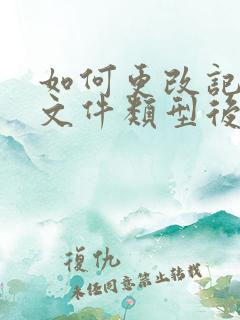 如何更改記
文件類型後
復仇
未经同意禁止转载